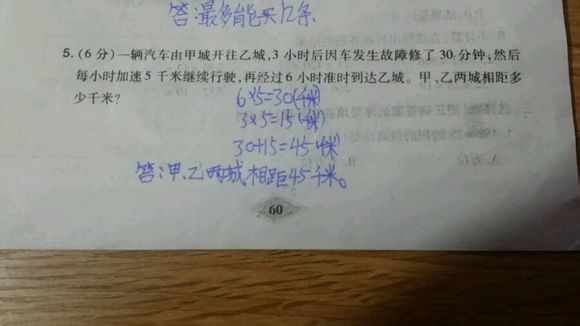 答:最多能买12条
5.(6分)一辆汽车由甲城开往乙城,3小时后因车发生故障修了30分钟,然后
每小时加速5千米继续行驶,再经过6小时准时到达乙城。甲、乙两城相距多
少千米?
6×5=30(千米)
3×5=15(千米)
30+15=45(千米)
答:甲、乙两城相距45千米。
60